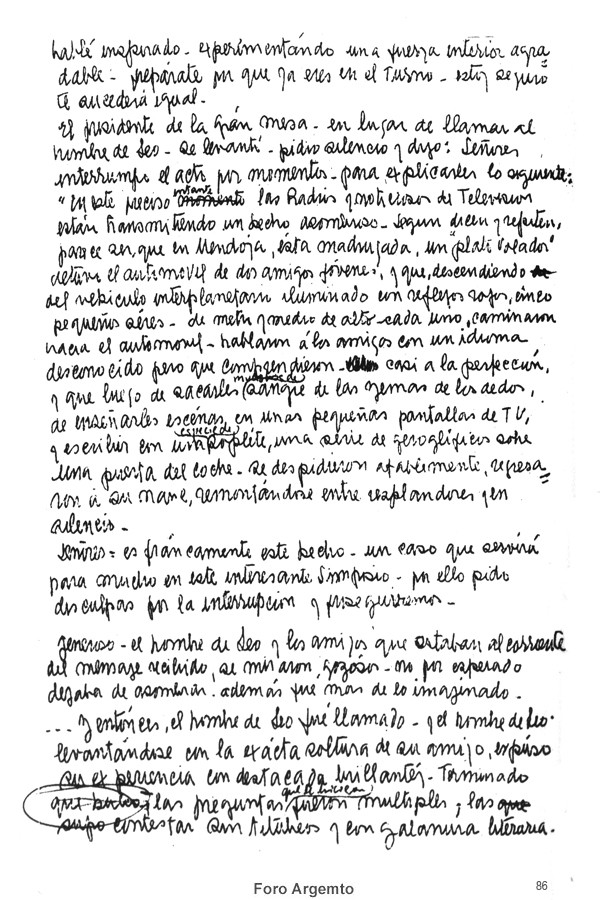 hablé inspirado - experimentando una fuerza interior agra
dable - prepárate por que ya eres en el Turno - estoy seguro
te sucederá igual.
El presidente de la gran mesa - en lugar de llamar al
hombre de Leo - se levantó - pidió silencio y dijo: Señores
interrumpo el acto por momentos - para explicarles lo siguiente:
"en este preciso instante las Radios y noticiosos de Television
están transmitiendo un hecho asombroso - segun dicen y repiten,
parece ser, que en Mendoza, esta madrugada, un "plato volador"
detuvo el automovil de dos amigos jóvenes, y que, descendiendo
del vehiculo interplanetario iluminado con reflejos rojos, cinco
pequeños séres - de metro y medio de alto - cada uno, caminaron
hacia el automovil - hablaron á los amigos con un idioma
desconocido pero que comprendieron casi a la perfección,
y que luego de sacarles muestras de sangre de las yemas de los dedos,
de enseñarles escénas, en unas pequeñas pantallas de TV,
y escribir con especie de un soplete, una série de geroglíficos sobre
una puerta del coche - se despidieron afablemente, regresa
ron á su nave, remontándose entre resplandores y en
silencio -
Señores = es fráncamente este hecho - un caso que servirá
para mucho en este interesante Simposio - por ello pido
disculpas por la interrupcion y proseguiremos -
generoso - el hombre de Leo y los amigos que estaban al corriente
del mensage recibido, se miraron, gozósos - no por esperado
dejaba de asombrar. además fue mas de lo imaginado -
... Y entónces, el hombre de Leo fué llamado - y el hombre de Leo
levantándose con la exácta soltura de su amigo, expuso
su experiencia con destacada brillantéz - Terminado
las preguntas que le hicieron fueron multiples; las
supo contestar sin titubeos y con galanura literaria.
Foro Argemto
86